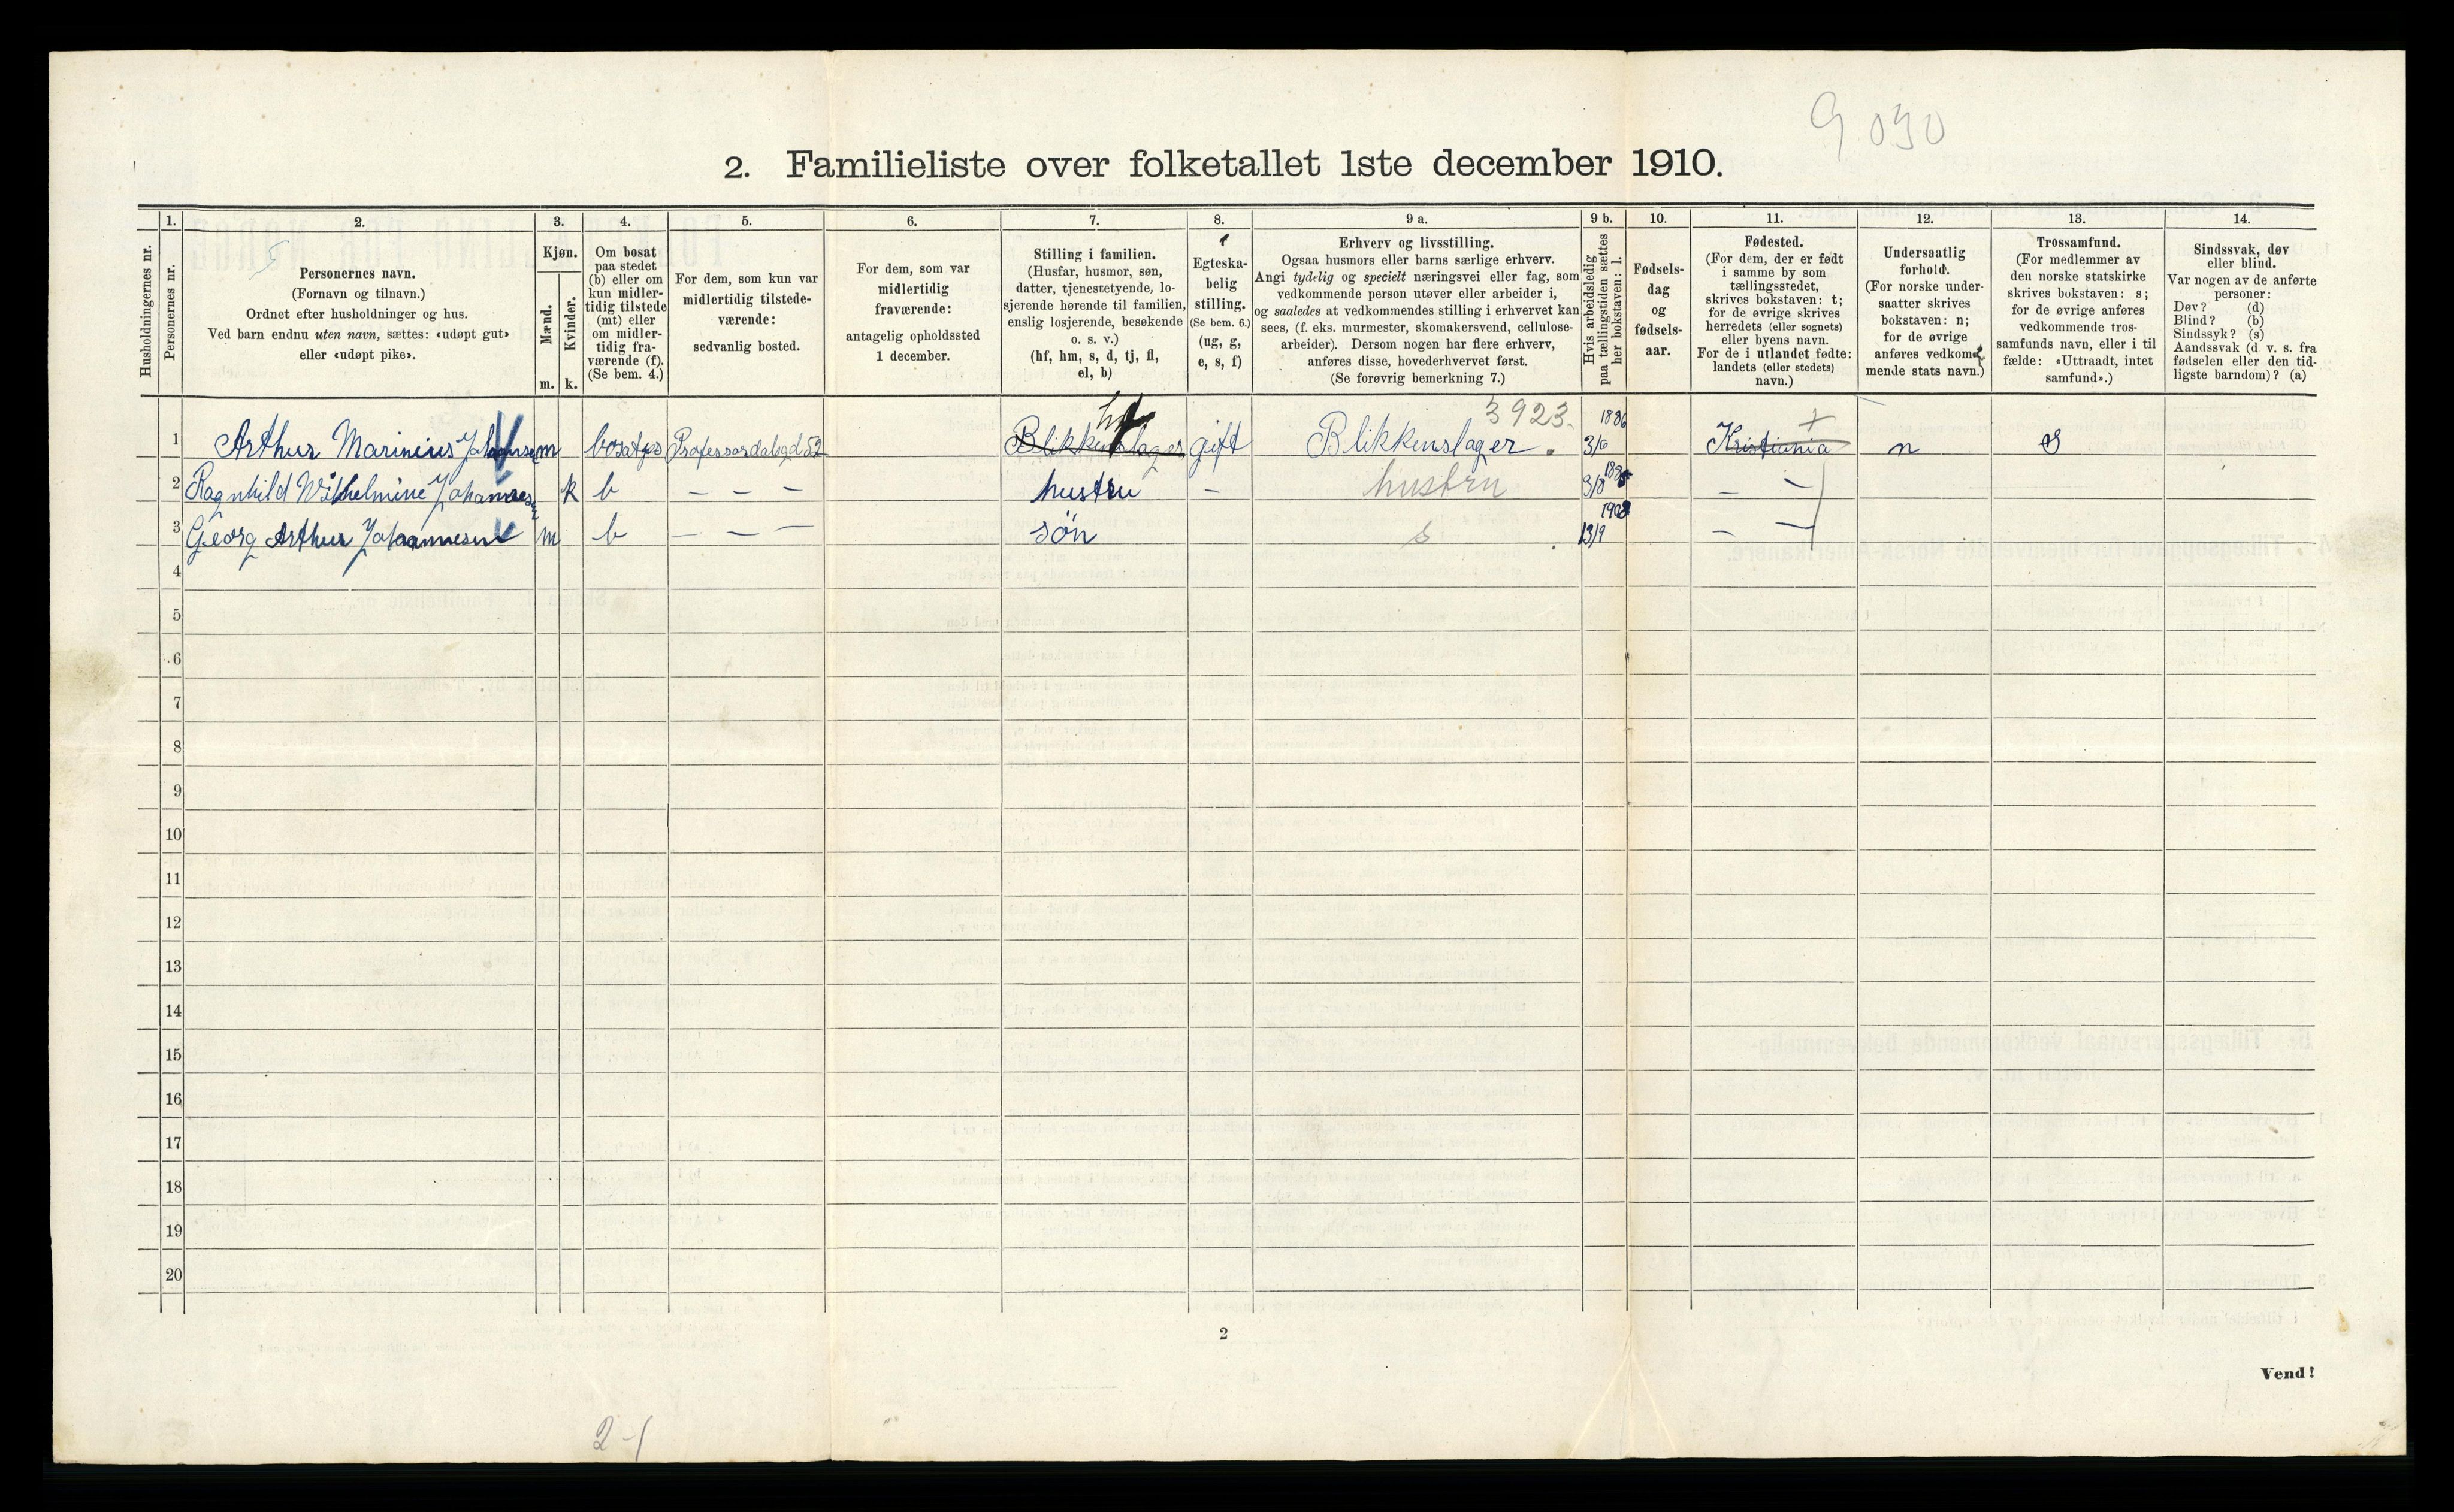 9030
2. Familieliste over folketallet 1ste december 1910.
Husholdningernes nr.
1.
Personernes nr.
2.
5
Personernes navn.
(Fornavn og tilnavn.)
Ordnet efter husholdninger og hus.
Ved barn endnu uten navn, sættes: «udøpt gut»
eller «udøpt pike».
3.
Kjøn.
Mænd.
Kvinder.
m. k.
4.
Om bosat
paa stedet
(b) eller om
kun midler-
tidig tilstede
(mt) eller
om midler-
tidig fra-
værende (f).
(Se bem. 4.)
5.
For dem, som kun var
midlertidig tilstede-
værende:
sedvanlig bosted.
6.
For dem, som var
midlertidig
fraværende:
antagelig opholdssted
1 december.
7.
Stilling i familien.
(Husfar, husmor, søn,
datter, tjenestetyende, lo-
sjerende hørende til familien,
enslig losjerende, besøkende
o. s. v.)
(hf, hm, s, d, tj, fl,
el, b)
8.
Egteska-
belig
stilling.
(Se bem. 6.)
(ug, g,
e, s, f)
9 a.
Erhverv og livsstilling.
Ogsaa husmors eller barns særlige erhverv.
Angi tydelig og specielt næringsvei eller fag, som
vedkommende person utøver eller arbeider i,
og saaledes at vedkommendes stilling i erhvervet kan
sees, (f. eks. murmester, skomakersvend, cellulose-
arbeider). Dersom nogen har flere erhverv,
anføres disse, hovederhvervet først.
(Se forøvrig bemerkning 7.)
9 b.
Hvis arbeidsledig
paa tællingstiden sættes
her bokstaven: l.
10.
Fødsels-
dag
og
fødsels-
aar.
11.
Fødested.
(For dem, der er født
i samme by som
tællingsstedet,
skrives bokstaven: t;
for de øvrige skrives
herredets (eller sognets)
eller byens navn.
For de i utlandet fødte:
landets (eller stedets)
navn.)
12.
Undersaatlig
forhold.
(For norske under-
saatter skrives
bokstaven: n;
for de øvrige
anføres vedkom-
mende stats navn.)
13.
Trossamfund.
(For medlemmer av
den norske statskirke
skrives bokstaven: s;
for de øvrige anføres
vedkommende tros-
samfunds navn, eller i til
fælde: «Uttraadt, intet
samfund».)
14.
Sindssvak, døv
eller blind.
Var nogen av de anførte
personer:
Døv? (d)
Blind? (b)
Sindssyk? (s)
Aandssvak (d. v. s. fra
fødselen eller den tid-
ligste barndom)? (a)
hf 3923. 1886 t
1 Arthur Marinius Johannsen m bosatgs Professordalsgd 52 Blikkenslager gift Blikkenslager. 3/6 Kristiania n S
2 Ragnhild Wilhelmine Johannesen k b — — — hustru — hustru 3/8 — —
3 Georg Arthur Johannesen m b — — — søn s 13/9 1908 — —
4
5
6
7
8
9
10
11
12
13
14
15
16
17
18
19
20
2
Vend!
2-1